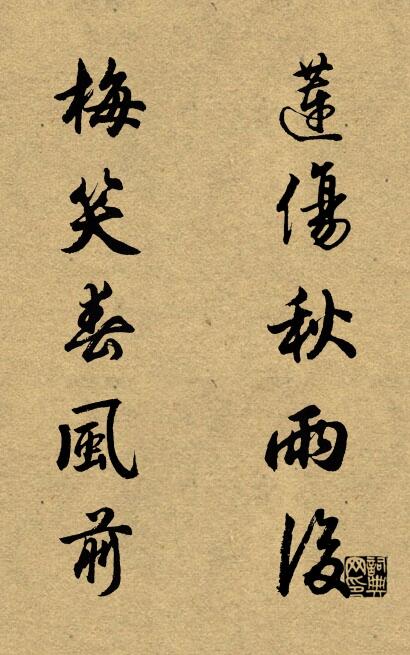 蓮傷秋雨後
梅笑春風前
詞典網印